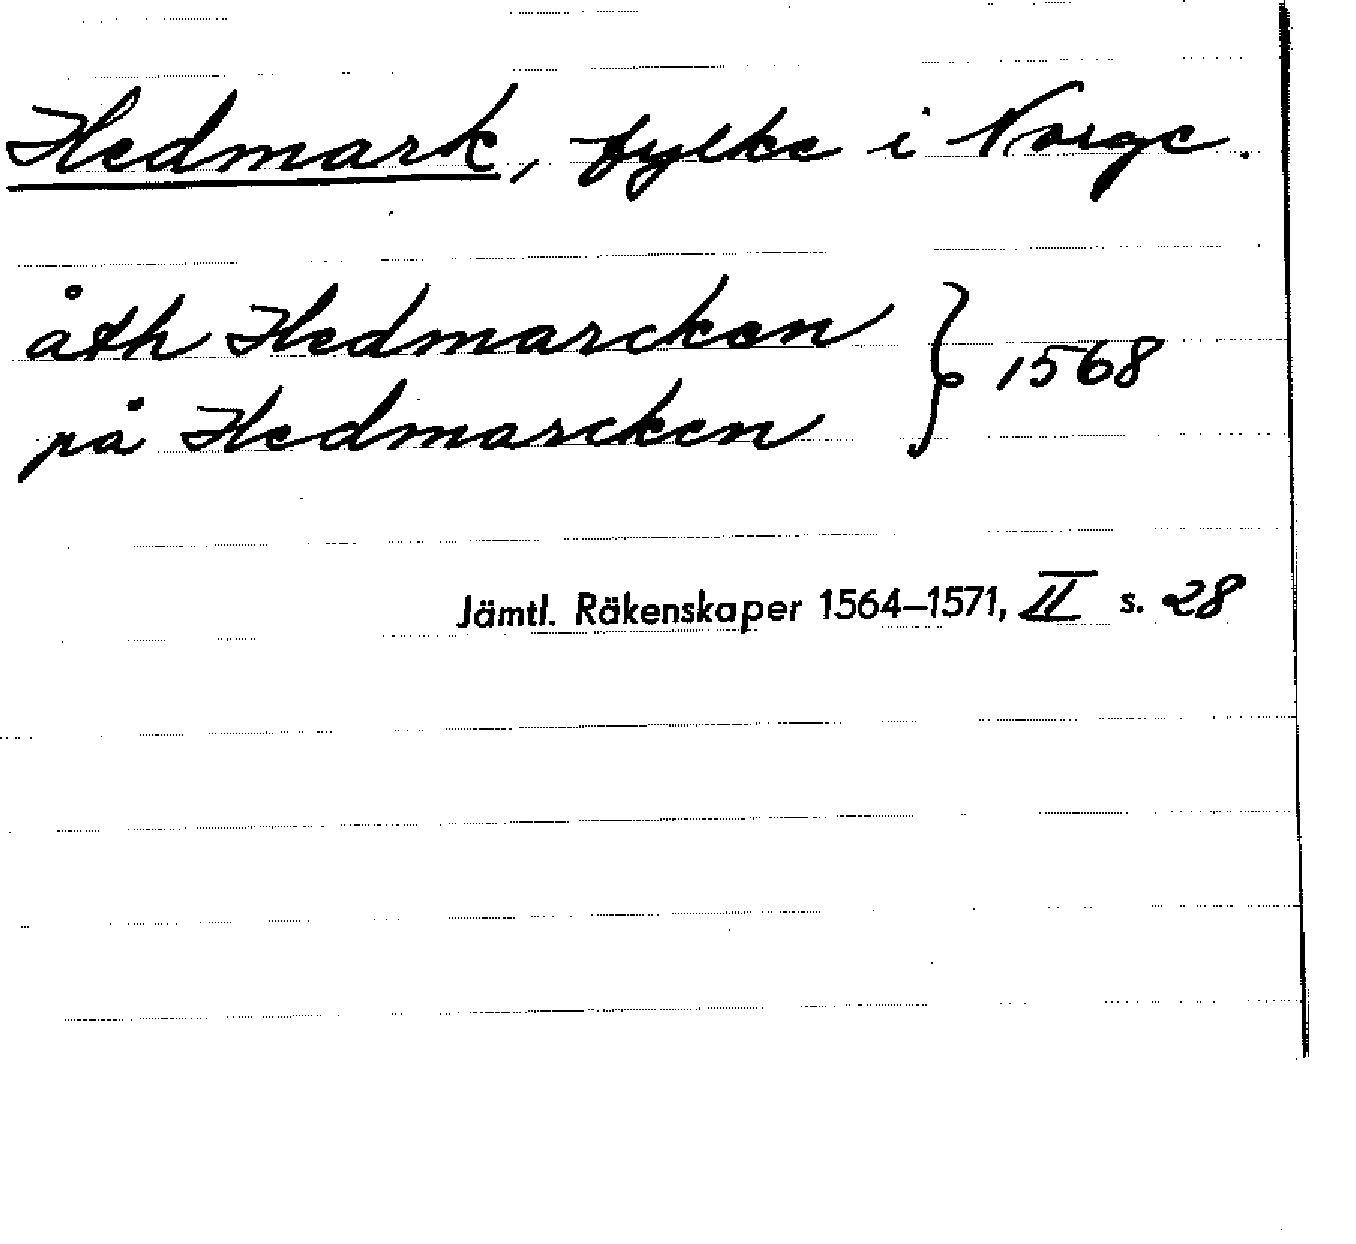 Hedmark, fylke i Norge.
åth Hedmarcken
på Hedmarcken } 1568
Jämtl. Räkenskaper 1564–1571, II s. 28